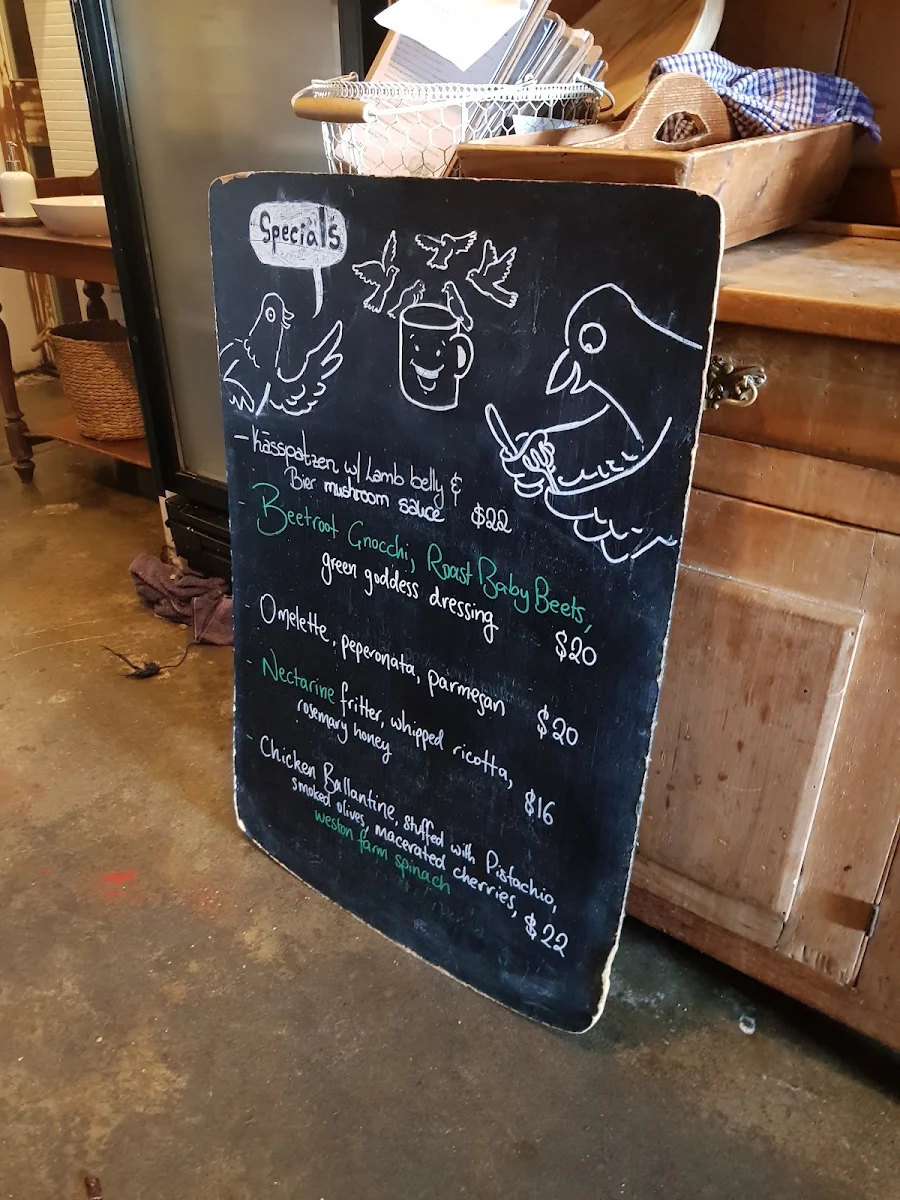 Specials
- Kässpatzen w/ Lamb belly &
Bier mushroom sauce $22
- Beetroot Gnocchi, Roast Baby Beets,
green goddess dressing $20
- Omelette, peperonata, parmegan $20
- Nectarine fritter, whipped ricotta,
rosemary honey $16
- Chicken Ballantine, stuffed with Pistachio,
smoked olives, macerated cherries,
weston farm spinach $22